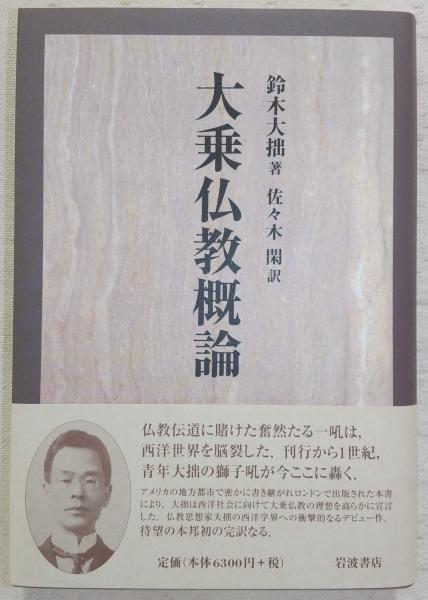 鈴木大拙 著 佐々木 閑 訳
大乗仏教概論
仏教伝道に賭けた奮然たる一吼は，
西洋世界を脳裂した．刊行から1世紀，
青年大拙の獅子吼が今ここに轟く．
アメリカの地方都市で密かに書き継がれロンドンで出版された本書
により，大拙は西洋社会に向けて大乗仏教の理想を高らかに宣言
した．仏教思想家大拙の西洋学界への衝撃的なるデビュー作．
待望の本邦初の完訳なる．
定価(本体6300円+税)
岩波書店